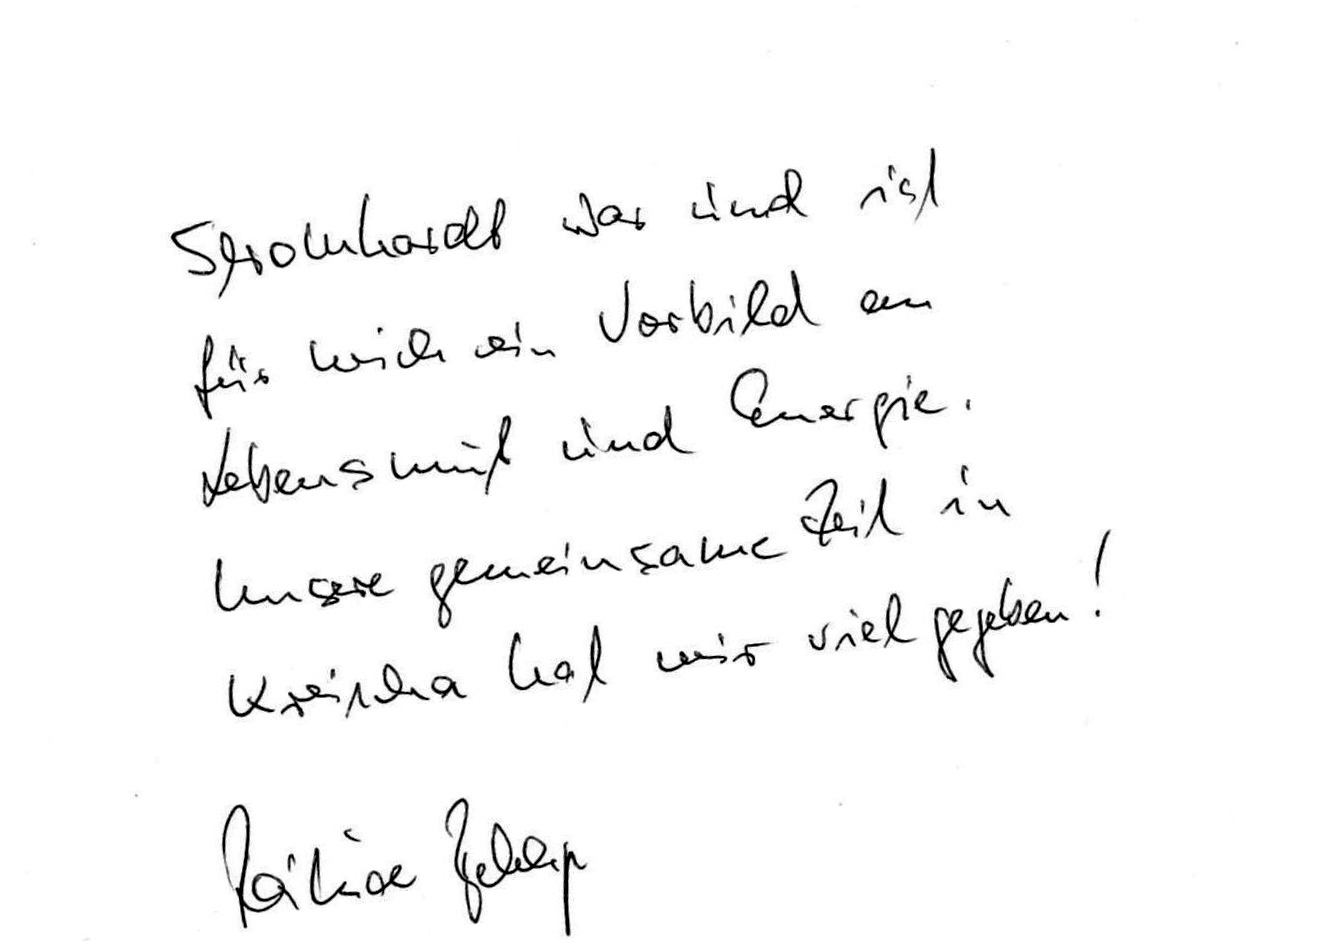 war und ist
für mich ein Vorbild an
Lebensmut und Energie.
Unsere gemeinsame Zeit in
Kreischa hat mir viel gegeben!